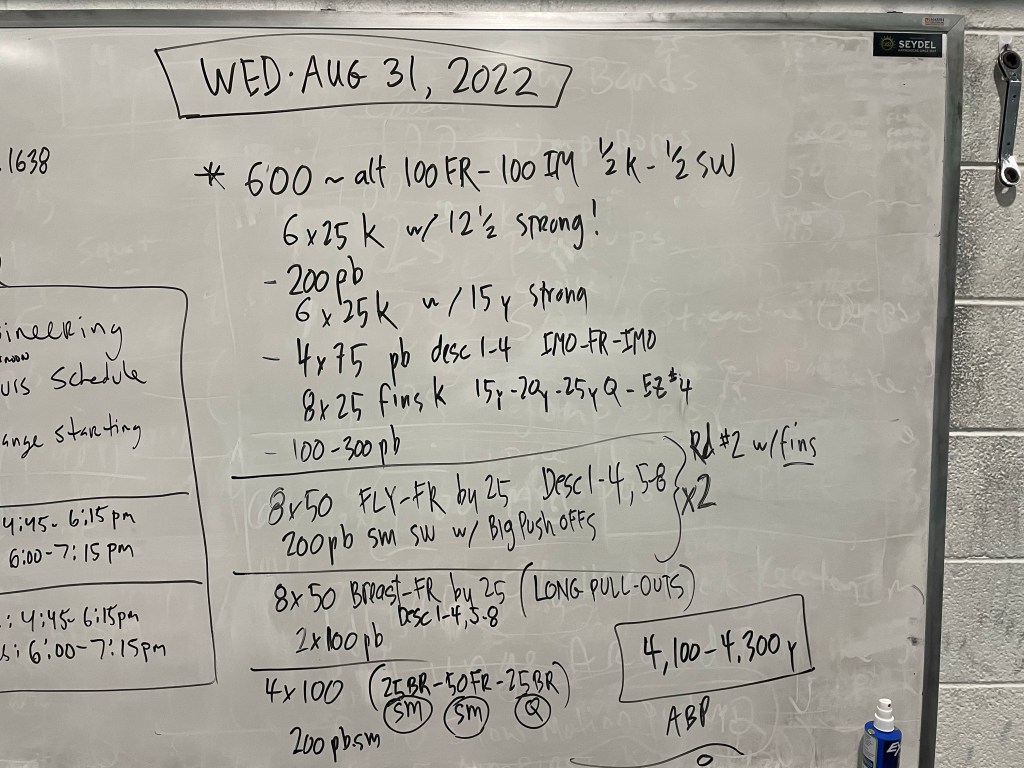 WED. AUG 31, 2022
SEYDEL
.1638
* 600 ~ alt 100 FR - 100 IM ½ K - ½ SW
6x25 K w/ 12½ strong!
- 200 pb
6x25 K w/ 15y strong
- 4x75 pb desc 1-4 IMO-FR-IMO
8x25 fins K 15y-20y-25y Q - EZ #4
- 100-300 pb
8x50 FLY-FR by 25 Desc 1-4, 5-8
200 pb sm sw w/ Big Push OFFS
x2
Rd #2 w/ fins
8x50 Breast-FR by 25 (LONG PULL-OUTS)
Desc 1-4, 5-8
2x100 pb
4x100 (25BR-50FR-25BR)
sm sm Q
200 pb sm
4,100-4,300 y
ABP
ineering
urs Schedule
ange starting
4:45-6:15 pm
6:00-7:15 pm
: 4:45-6:15pm
s: 6:00-7:15pm